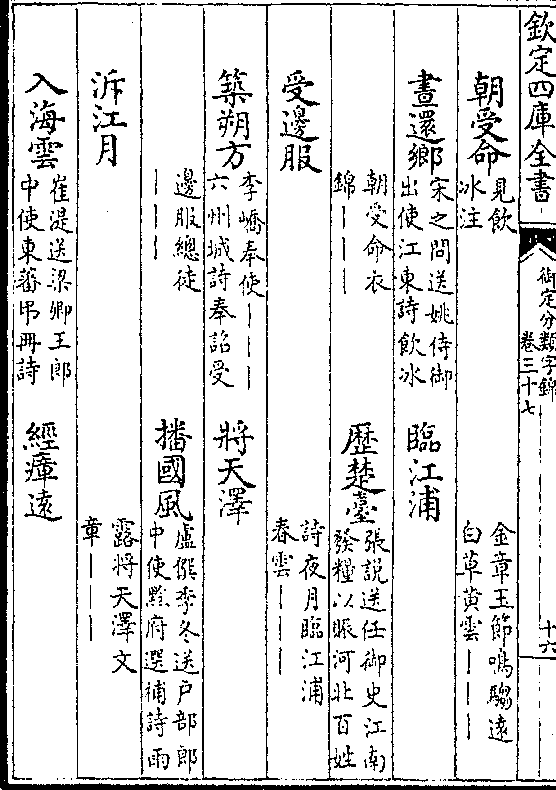 欽定四庫全書
御定分類字錦
卷三十七
十六
朝受命
見飲
冰注
金章玉節鳴騶遠
白草黄雲｜｜｜
晝還鄉
宋之問送姚侍御
出使江東詩飲冰
臨江浦
朝受命衣
錦｜｜｜
歷楚臺
張說送任御史江南
發糧以賑河北百姓
受邊服
詩夜月臨江浦
春雲｜｜｜
築朔方
李嶠奉使｜｜｜
六州城詩奉詔受
將天澤
邊服總徒
｜｜｜
播國風
盧僎季冬送戶部郎
中使黔府選補詩雨
泝江月
露將天澤文
章｜｜｜
入海雲
崔湜送梁卿王郎
中使東蕃弔冊詩
經瘴遠